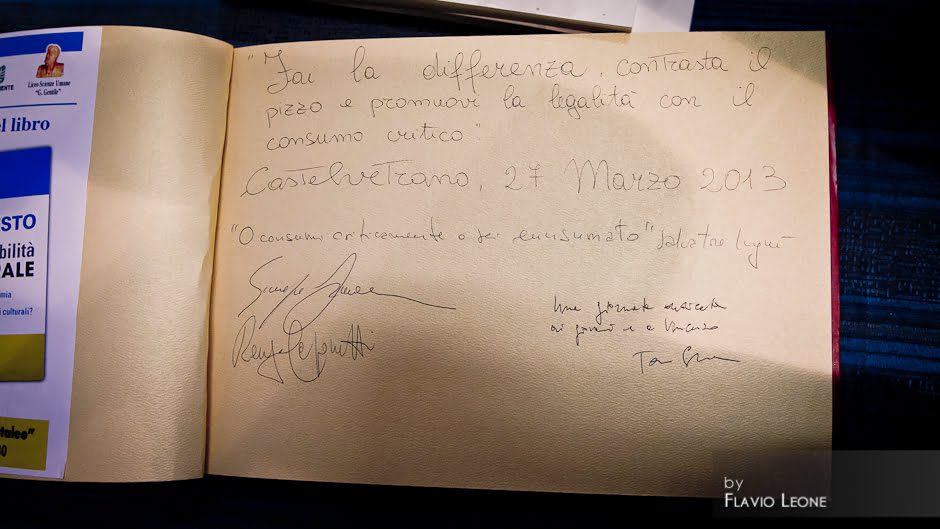 Liceo Scienze Umane
"G. Gentile"
el libro
STO
bilità
RALE
mia
i culturali?
taleo"
30
"Fai la differenza, contrasta il
pizzo e promuovi la legalità con il
consumo critico"
Castelvetrano, 27 Marzo 2013
"O consumi criticamente o sei consumato" Salvatore
Una giornata dedicata
ai giovani e a Vincenzo
by
FLAVIO LEONE